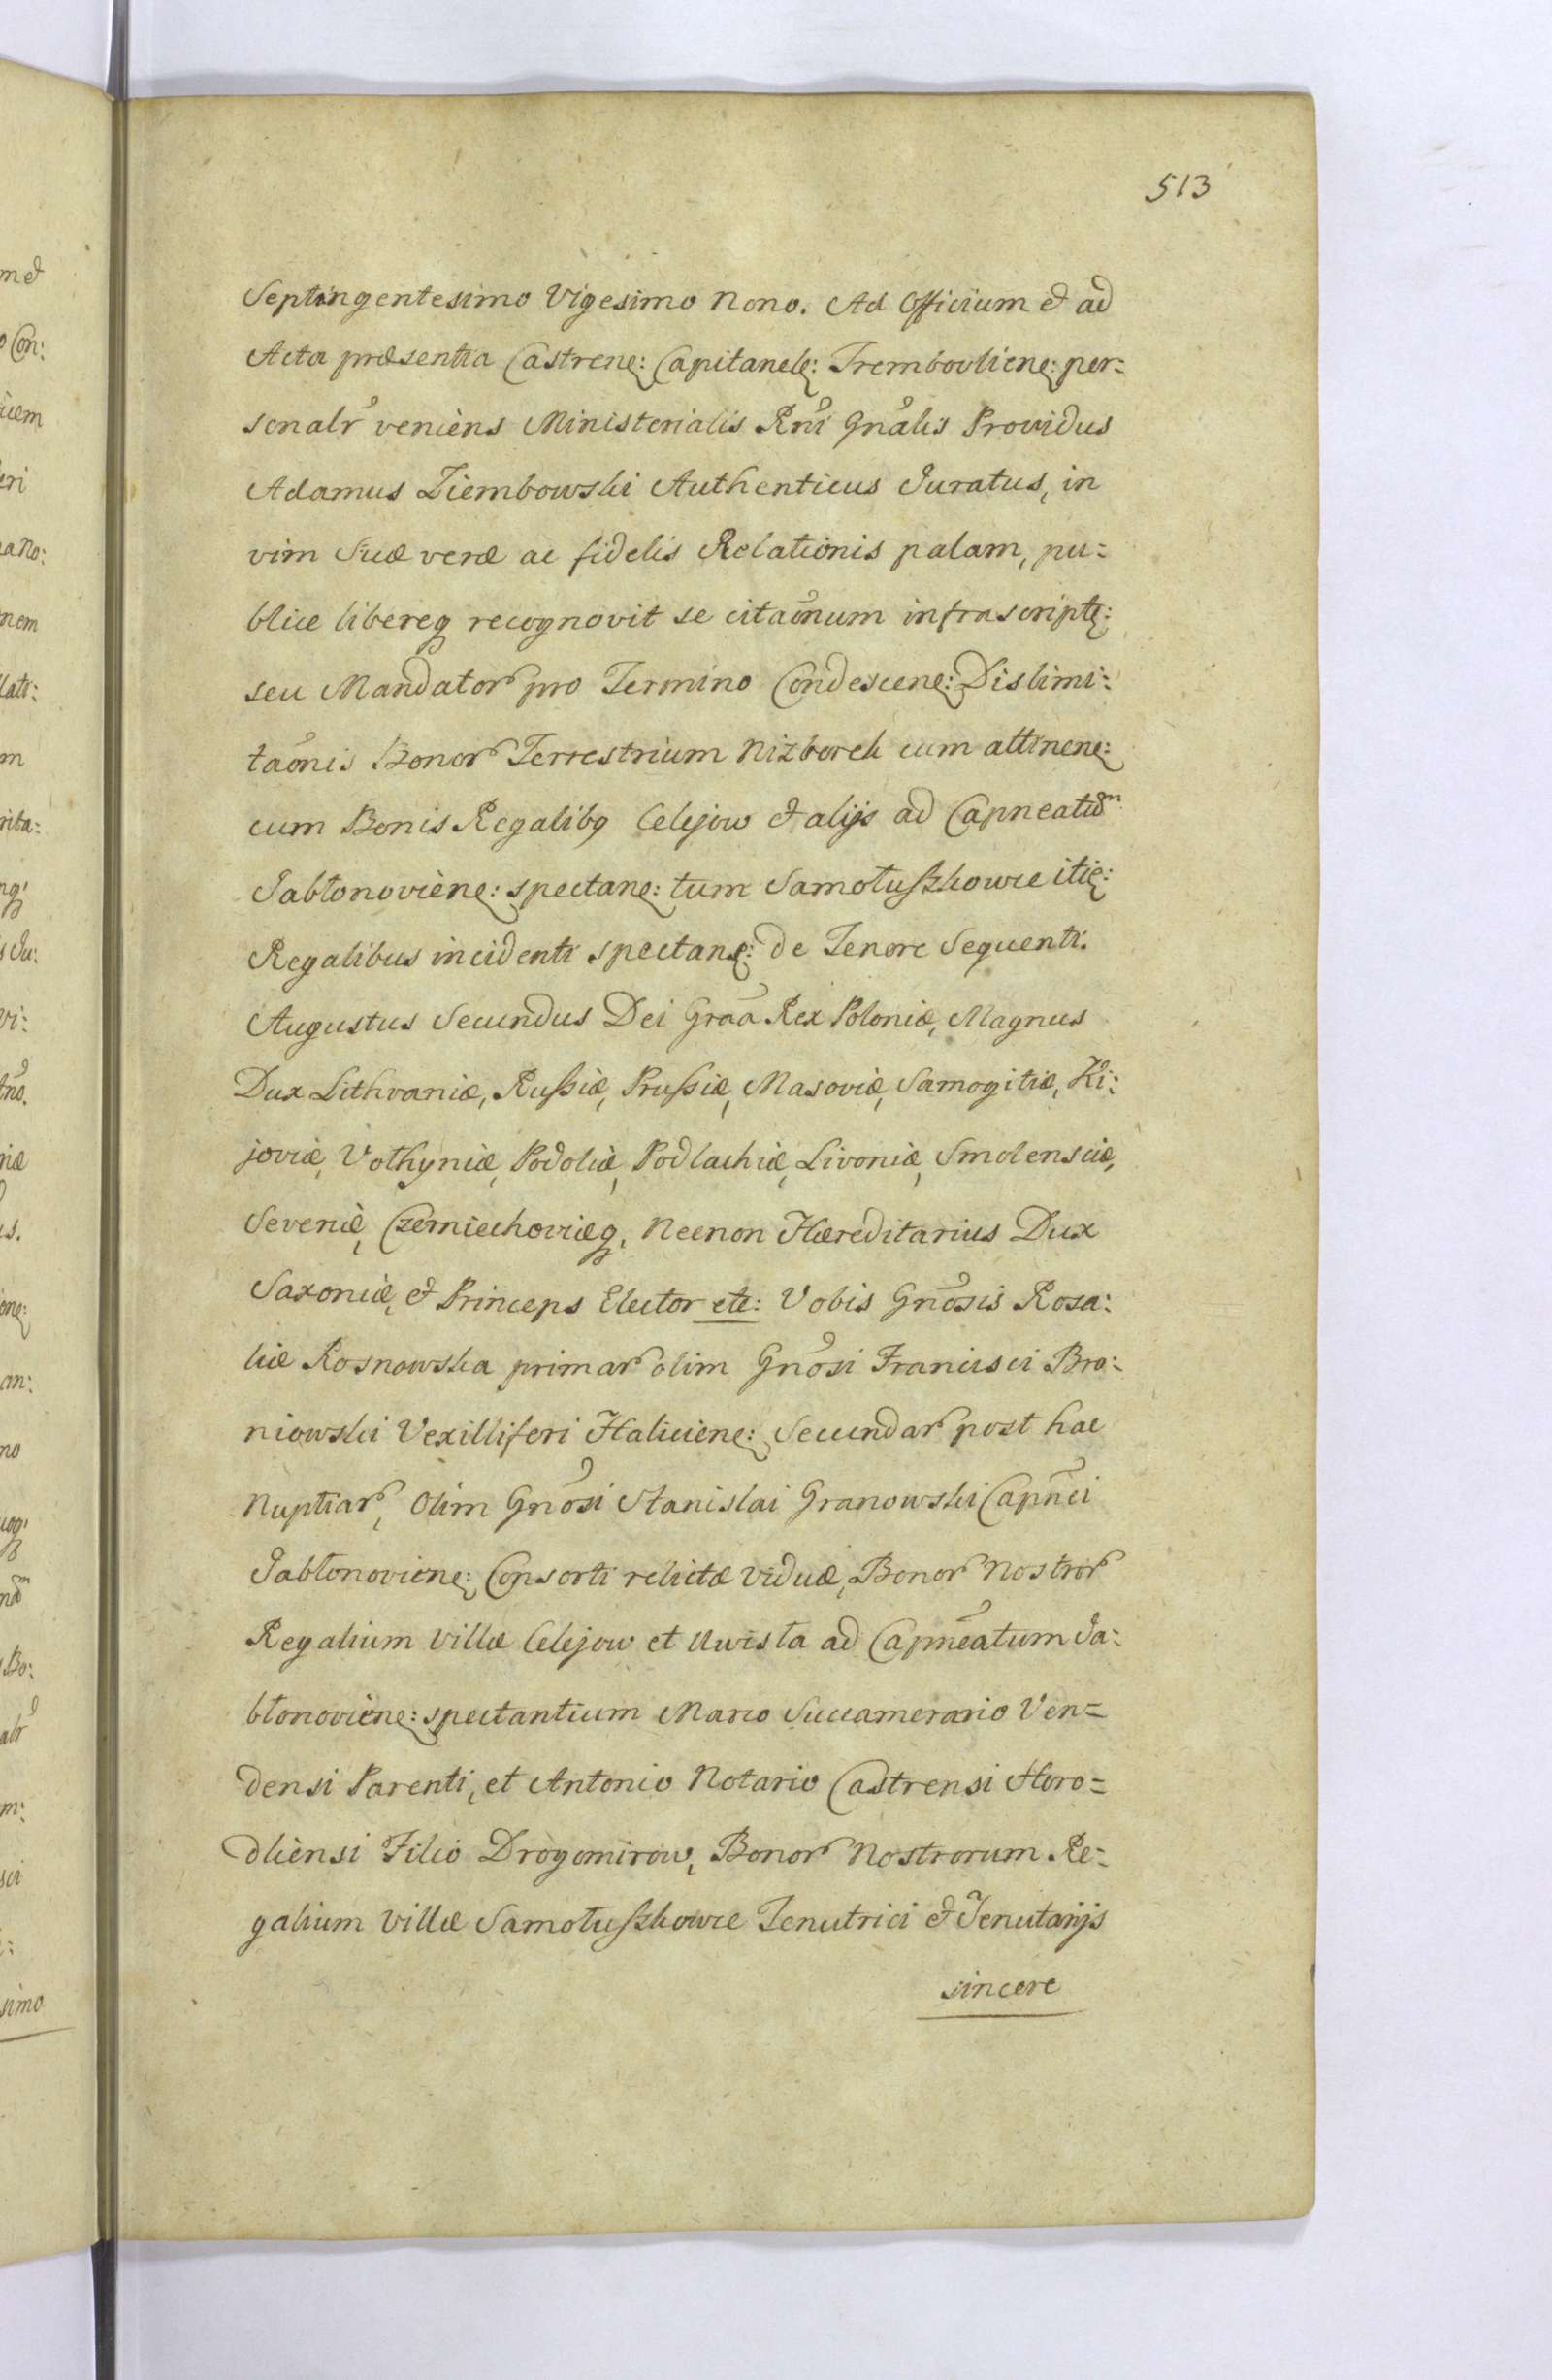 513
Septingentesimo Vigesimo Nono. Ad Officium et ad
Acta præsentia Castrenꝭ: Capitanelꝭ: Trembovlienꝭ: per:
sonalr veniens Ministerialis Rni Gnalis Providus
Adamus Ziembowski Authenticus Juratus, in
vim Suæ veræ ac fidelis Relationis palam, pu=
blice libereq recognovit se citaonum infrascriptꝭ:
seu Mandator pro Termino Condescenꝭ: Dislimi:
taonis Bonor Terrestrium Nizborek cum attinenꝭ:
cum Bonis Regalibq Celejow et alijs ad Capneatum
Jabłonovienꝭ: spectanꝭ: tum Samołuszkowce itiꝭ:
Regalibus incidenti spectanꝭ: de Tenore Sequenti.
Augustus Secundus Dei Graa Rex Poloniæ, Magnus
Dux Lithvaniæ, Rußiæ, Prußiæ, Masoviæ, Samogitiæ, Ki:
joviæ, Vołhyniæ, Podoliæ, Podlachiæ, Livoniæ, Smolensciæ,
Severiæ, Czerniechoviæq, Necnon Hæreditarius Dux
Saxoniæ, et Princeps Elector etc: Vobis Gnosis Rosa:
liæ Rosnowska primar olim Gnosi Francisci Bro:
niowski Vexilliferi Halicienꝭ: Secundar post hac
Nuptiar, Olim Gnosi Stanislai Granowski Capnei
Jabłonovienꝭ: Consorti relictæ Viduæ, Bonor Nostror
Regalium Villæ Celejow et Uwisła ad Capneatum Ja:
błonovienꝭ: spectantium Marco Succamerario Ven=
densi Parenti, et Antonio Notario Castrensi Horo=
dliensi Filio Drogomirow, Bonor Nostrorum Re=
galium Villæ Samołuszkowce Tenutrici et Tenutarijs
sincere